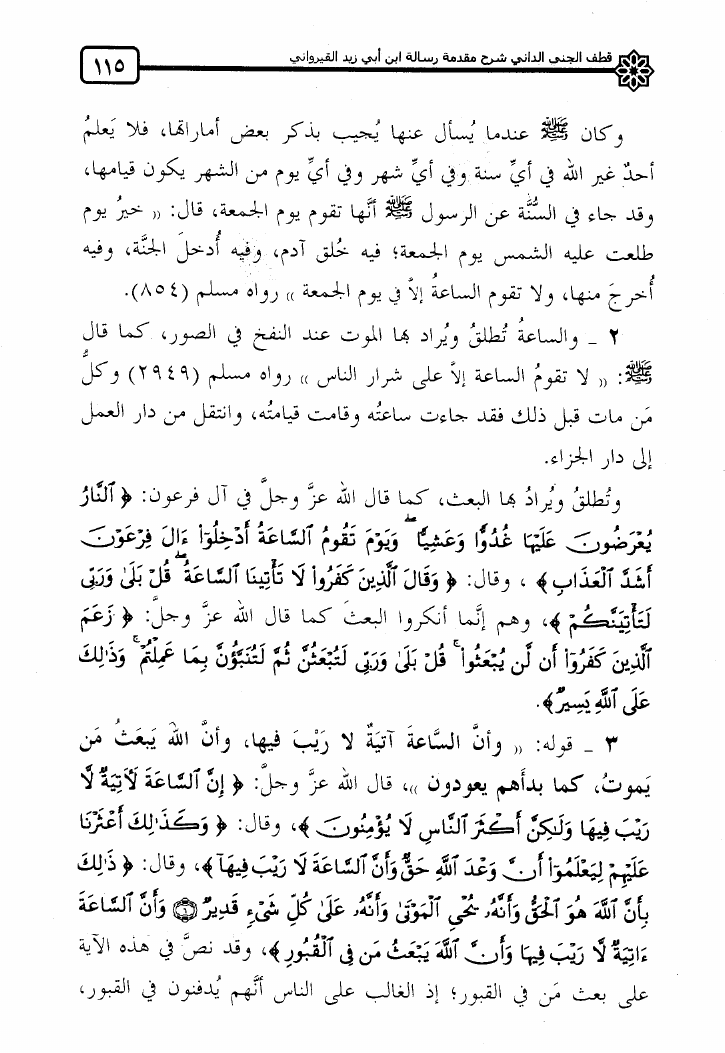 قطف الجنى الداني شرح مقدمة رسالة ابن أبي زيد القيرواني
١١٥
وكان ﷺ عندما يُسأل عنها يُجيب بذكر بعض أماراتها، فلا يَعلمُ
أحدٌ غير الله في أيِّ سنة وفي أيِّ شهر وفي أيِّ يوم من الشهر يكون قيامها،
وقد جاء في السُّنَّة عن الرسول ﷺ أنَّها تقوم يوم الجمعة، قال: « خيرُ يوم
طلعت عليه الشمس يوم الجمعة؛ فيه خُلق آدم، وفيه أُدخلَ الجنَّة، وفيه
أُخرجَ منها، ولا تقوم الساعةُ إلاَّ في يوم الجمعة » رواه مسلم (٨٥٤).
٢ ـ والساعةُ تُطلقُ ويُراد بها الموت عند النفخ في الصور، كما قال
ﷺ: « لا تقومُ الساعة إلاَّ على شرار الناس » رواه مسلم (٢٩٤٩) وكلُّ
مَن مات قبل ذلك فقد جاءت ساعتُه وقامت قيامتُه، وانتقل من دار العمل
إلى دار الجزاء.
وتُطلقُ ويُرادُ بها البعث، كما قال الله عزَّ وجلَّ في آل فرعون: ﴿ ٱلنَّارُ
يُعْرَضُونَ عَلَيْهَا غُدُوًّا وَعَشِيًّا ۖ وَيَوْمَ تَقُومُ ٱلسَّاعَةُ أَدْخِلُوٓا۟ ءَالَ فِرْعَوْنَ
أَشَدَّ ٱلْعَذَابِ ﴾ ، وقال: ﴿ وَقَالَ ٱلَّذِينَ كَفَرُوا۟ لَا تَأْتِينَا ٱلسَّاعَةُ ۖ قُلْ بَلَىٰ وَرَبِّى
لَتَأْتِيَنَّكُمْ ﴾، وهم إنَّما أنكروا البعثَ كما قال الله عزَّ وجلَّ: ﴿ زَعَمَ
ٱلَّذِينَ كَفَرُوٓا۟ أَن لَّن يُبْعَثُوا۟ ۚ قُلْ بَلَىٰ وَرَبِّى لَتُبْعَثُنَّ ثُمَّ لَتُنَبَّؤُنَّ بِمَا عَمِلْتُمْ ۚ وَذَٰلِكَ
عَلَى ٱللَّهِ يَسِيرٌ ﴾.
٣ ـ قوله: « وأنَّ السَّاعةَ آتيةٌ لا رَيْبَ فيها، وأنَّ اللهَ يَبعَثُ مَن
يَموتُ، كما بدأهم يعودون »، قال الله عزَّ وجلَّ: ﴿ إِنَّ ٱلسَّاعَةَ لَءَاتِيَةٌ لَّا
رَيْبَ فِيهَا وَلَٰكِنَّ أَكْثَرَ ٱلنَّاسِ لَا يُؤْمِنُونَ ﴾، وقال: ﴿ وَكَذَٰلِكَ أَعْثَرْنَا
عَلَيْهِمْ لِيَعْلَمُوٓا۟ أَنَّ وَعْدَ ٱللَّهِ حَقٌّ وَأَنَّ ٱلسَّاعَةَ لَا رَيْبَ فِيهَآ ﴾، وقال: ﴿ ذَٰلِكَ
بِأَنَّ ٱللَّهَ هُوَ ٱلْحَقُّ وَأَنَّهُۥ يُحْىِ ٱلْمَوْتَىٰ وَأَنَّهُۥ عَلَىٰ كُلِّ شَىْءٍ قَدِيرٌ ۝٦ وَأَنَّ ٱلسَّاعَةَ
ءَاتِيَةٌ لَّا رَيْبَ فِيهَا وَأَنَّ ٱللَّهَ يَبْعَثُ مَن فِى ٱلْقُبُورِ ﴾، وقد نصَّ في هذه الآية
على بعث مَن في القبور؛ إذ الغالب على الناس أنَّهم يُدفنون في القبور،